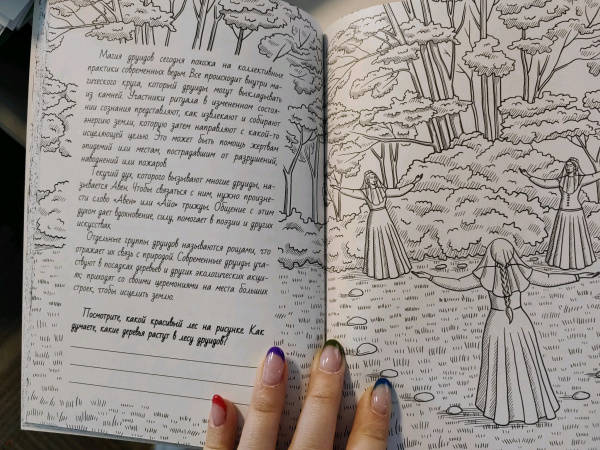 Магия друидов сегодня похожа на коллективные
практики современных ведьм. Все происходит внутри ма-
гического круга, который друиды могут выкладывать
из камней. Участники ритуала в измененном состоя-
нии сознания представляют, как извлекают и собирают
энергию земли, которую затем направляют с какой-то
исцеляющей целью. Это может быть помощь жертвам
эпидемий или местам, пострадавшим от разрушений,
наводнений или пожаров.
Текущий дух, которого вызывают многие друиды, на-
зывается Авен. Чтобы связаться с ним, нужно произне-
сти слово «Авен» или «Айо» трижды. Общение с этим
духом дает вдохновение, силу, помогает в поэзии и других
искусствах.
Отдельные группы друидов называются рощами, что
отражает их связь с природой. Современные друиды уча-
ствуют в посадках деревьев и других экологических акци-
ях; приходят со своими церемониями на места больших
строек, чтобы исцелить землю.
Посмотрите, какой красивый лес на рисунке. Как
думаете, какие деревья растут в лесу друидов?